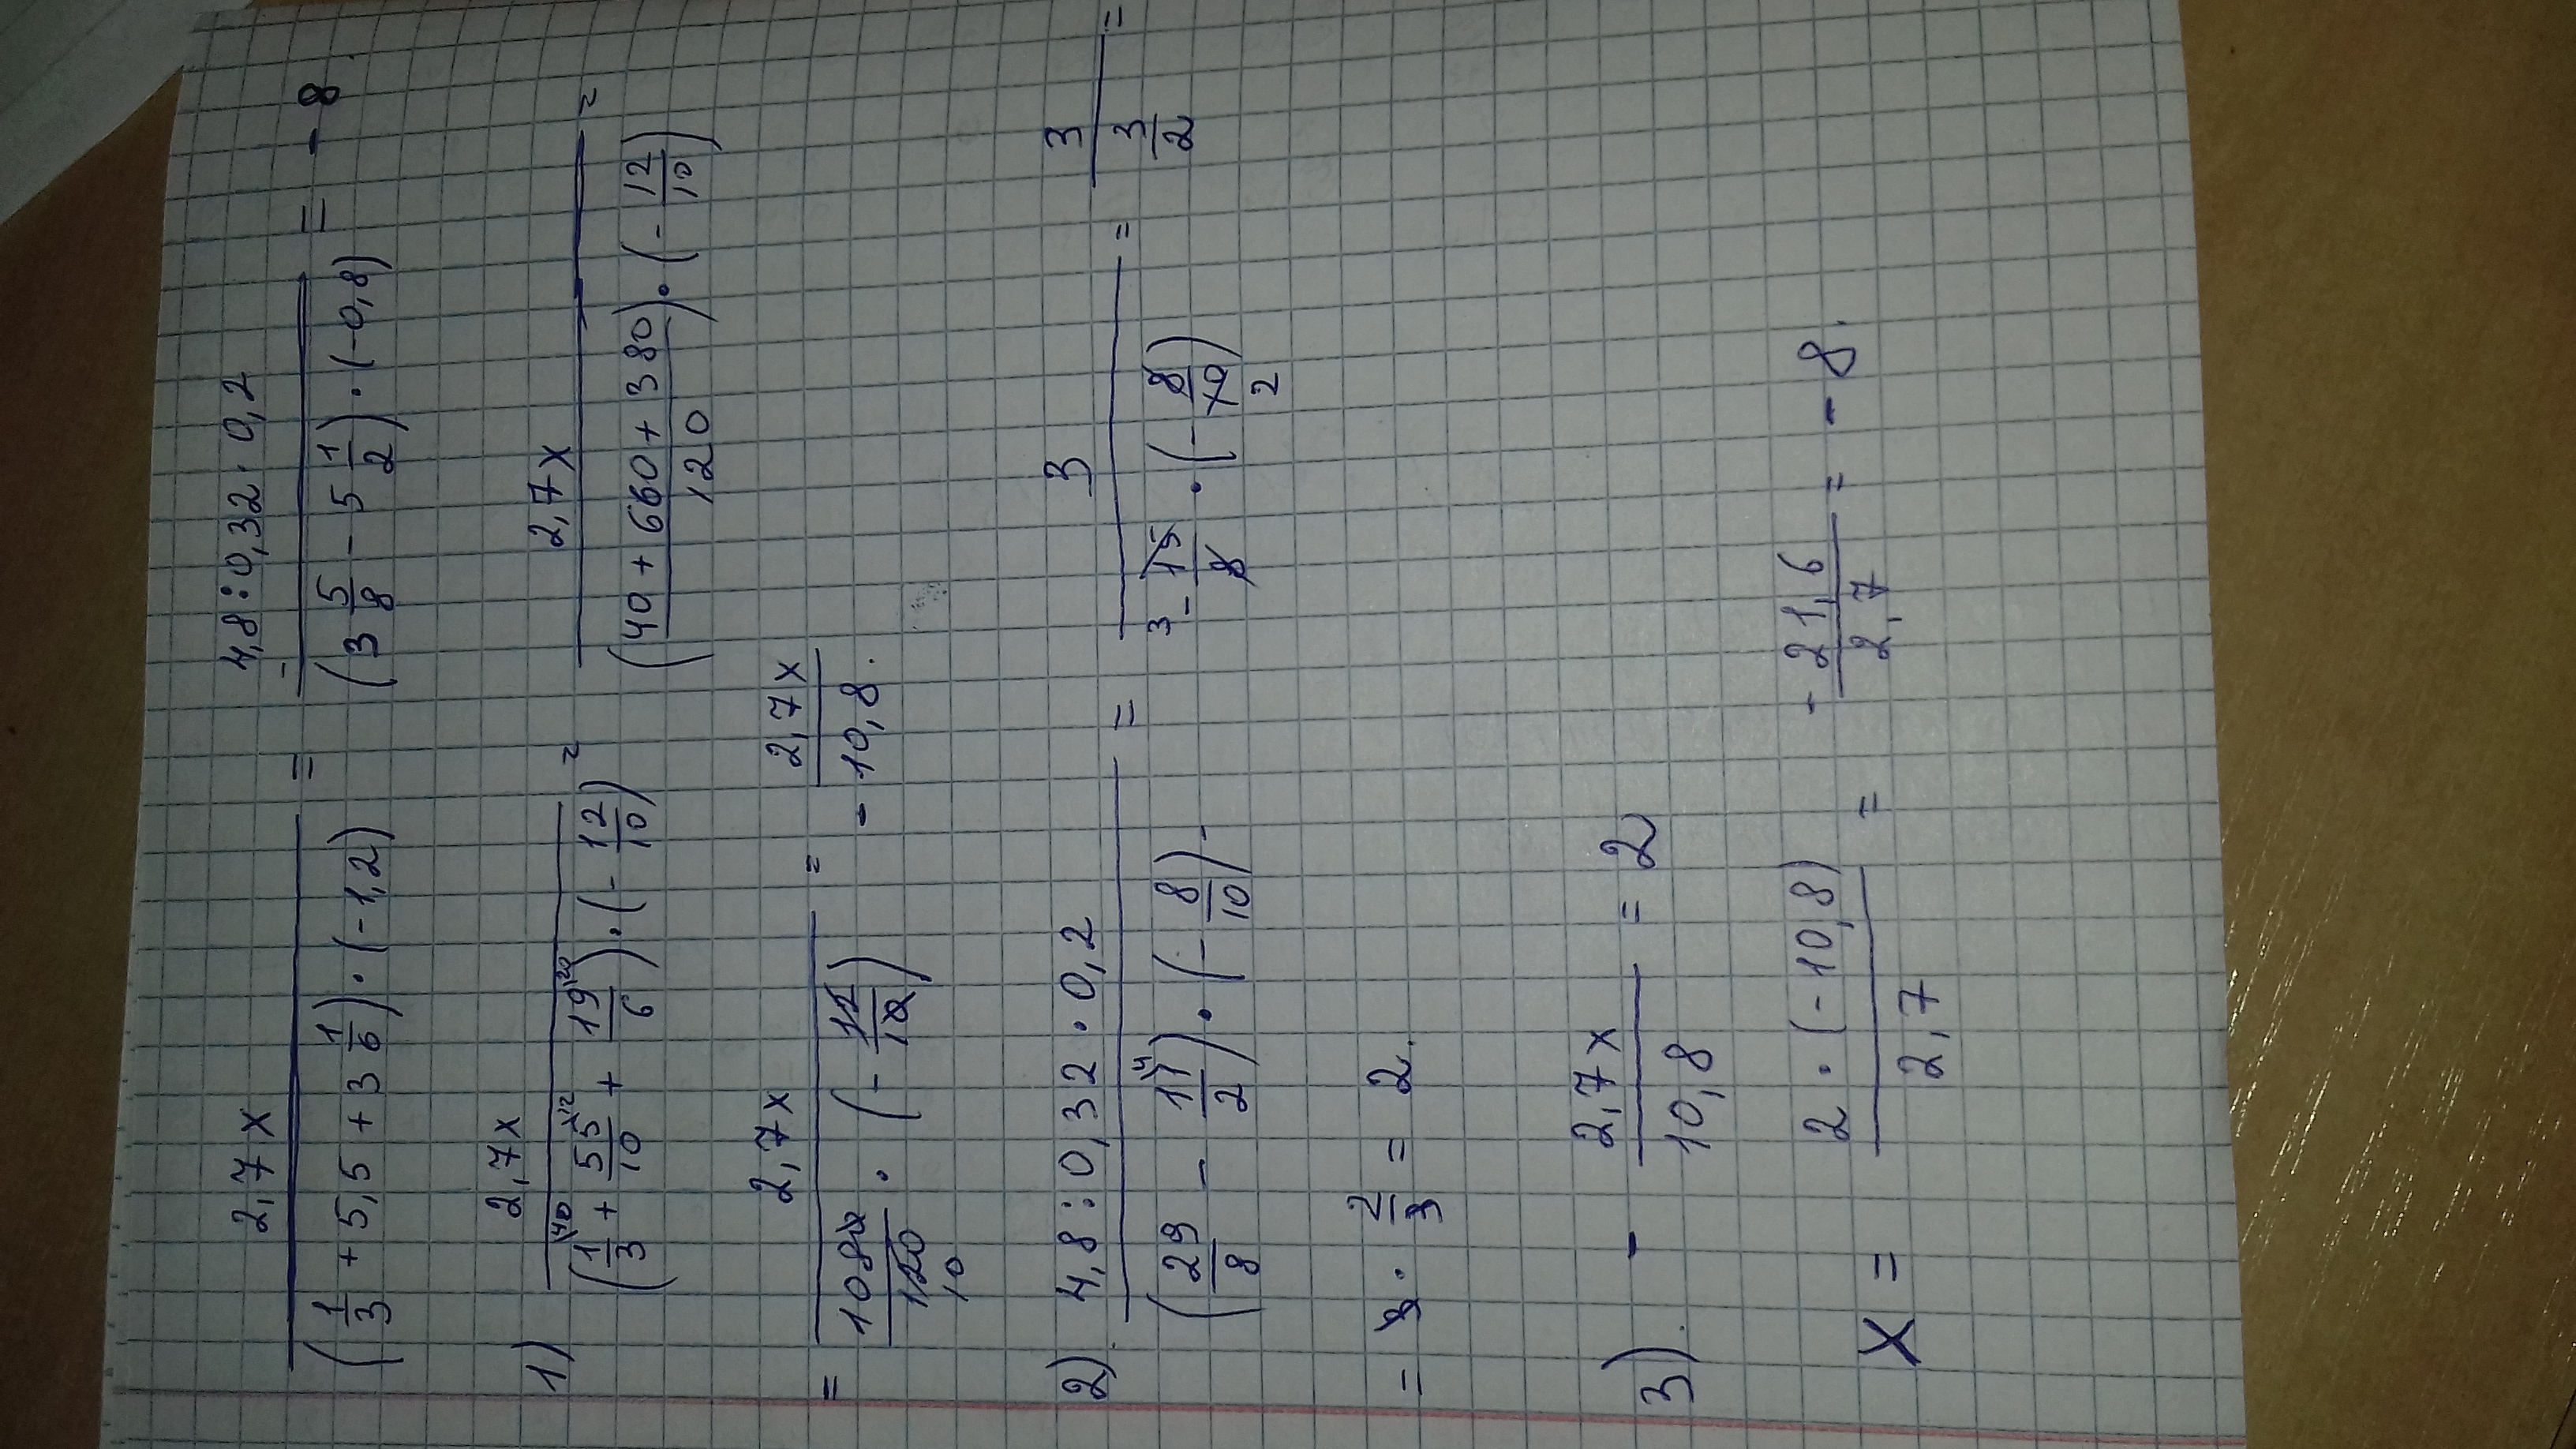 2,7x / ((1/3 + 5,5 + 3 1/6) · (-1,2)) = 4,8 : 0,32 · 0,2 / ((3 5/8 - 5 1/2) · (-0,8)) = -8.
1) 2,7x / ((1/3 \40 + 55/10 \12 + 19/6 \20) · (-12/10)) = 2,7x / ((40 + 660 + 380)/120 · (-12/10)) =
= 2,7x / (1080/120 10 · (-12/10)) = - 2,7x / 10,8.
2). 4,8 : 0,32 · 0,2 / ((29/8 - 11/2 \4) · (-8/10)) = 3 / (3 -15/8 · (-8/10 2)) = 3 / (3/2) =
= 3 · 2/3 = 2.
3). - 2,7x / 10,8 = 2
x = 2 · (-10,8) / 2,7 = - 21,6 / 2,7 = -8.